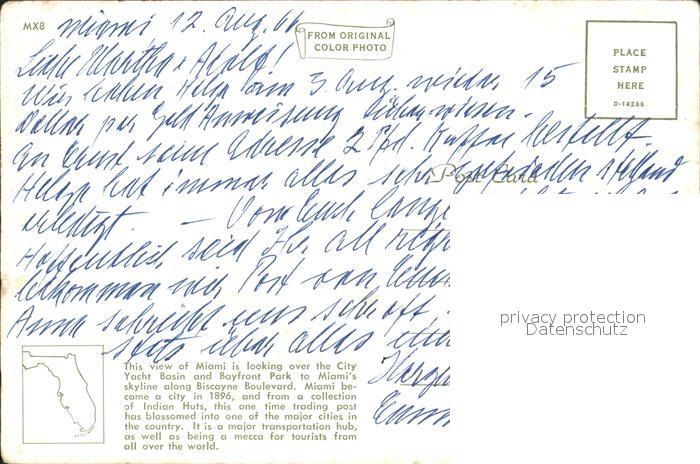 MX8
Miami 12. Aug. 66
FROM ORIGINAL
COLOR PHOTO
PLACE
STAMP
HERE
D-14286
Liebe Martha + Adolf!
Wir haben Helga am 3. Aug. wieder 15
Dollar per Geld Anweisung überwiesen.
An Eure seine Adresse 2 Pfd. Kaffee bestellt.
Helga hat immer alles sehr zufrieden
Post Card
erledigt. — Von Euch lange
Hoffentlich seid Ihr all
bekommen wir Post von
Anna schreibt uns sehr oft.
stets über alles
privacy protection
Datenschutz
This view of Miami is looking over the City
Yacht Basin and Bayfront Park to Miami's
skyline along Biscayne Boulevard. Miami be-
came a city in 1896, and from a collection
of Indian Huts, this one time trading post
has blossomed into one of the major cities in
the country. It is a major transportation hub,
as well as being a mecca for tourists from
all over the world.